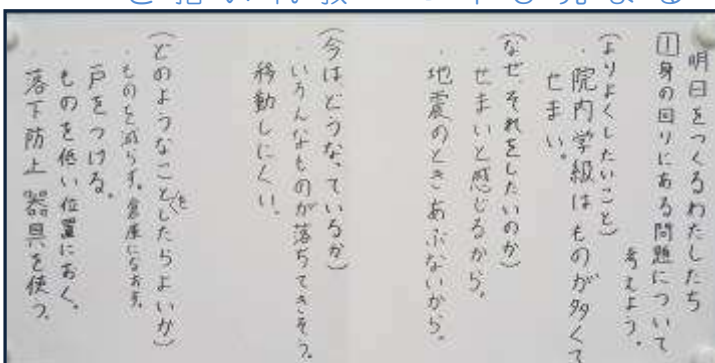 明日をつくるわたしたち
1身の回りにある問題について
考えよう。
(よりよくしたいこと)
・院内学級はものが多くて
せまい。
(なぜ、それをしたいのか)
・せまいと感じるから。
・地震のときあぶないから。
(今はどうなっているか)
・いろんなものが落ちてきそう。
移動しにくい。
(どのようなことをしたらよいか)
・ものを減らす。倉庫になおす。
・戸をつける。
・ものを低い位置におく。
落下防止器具を使う。